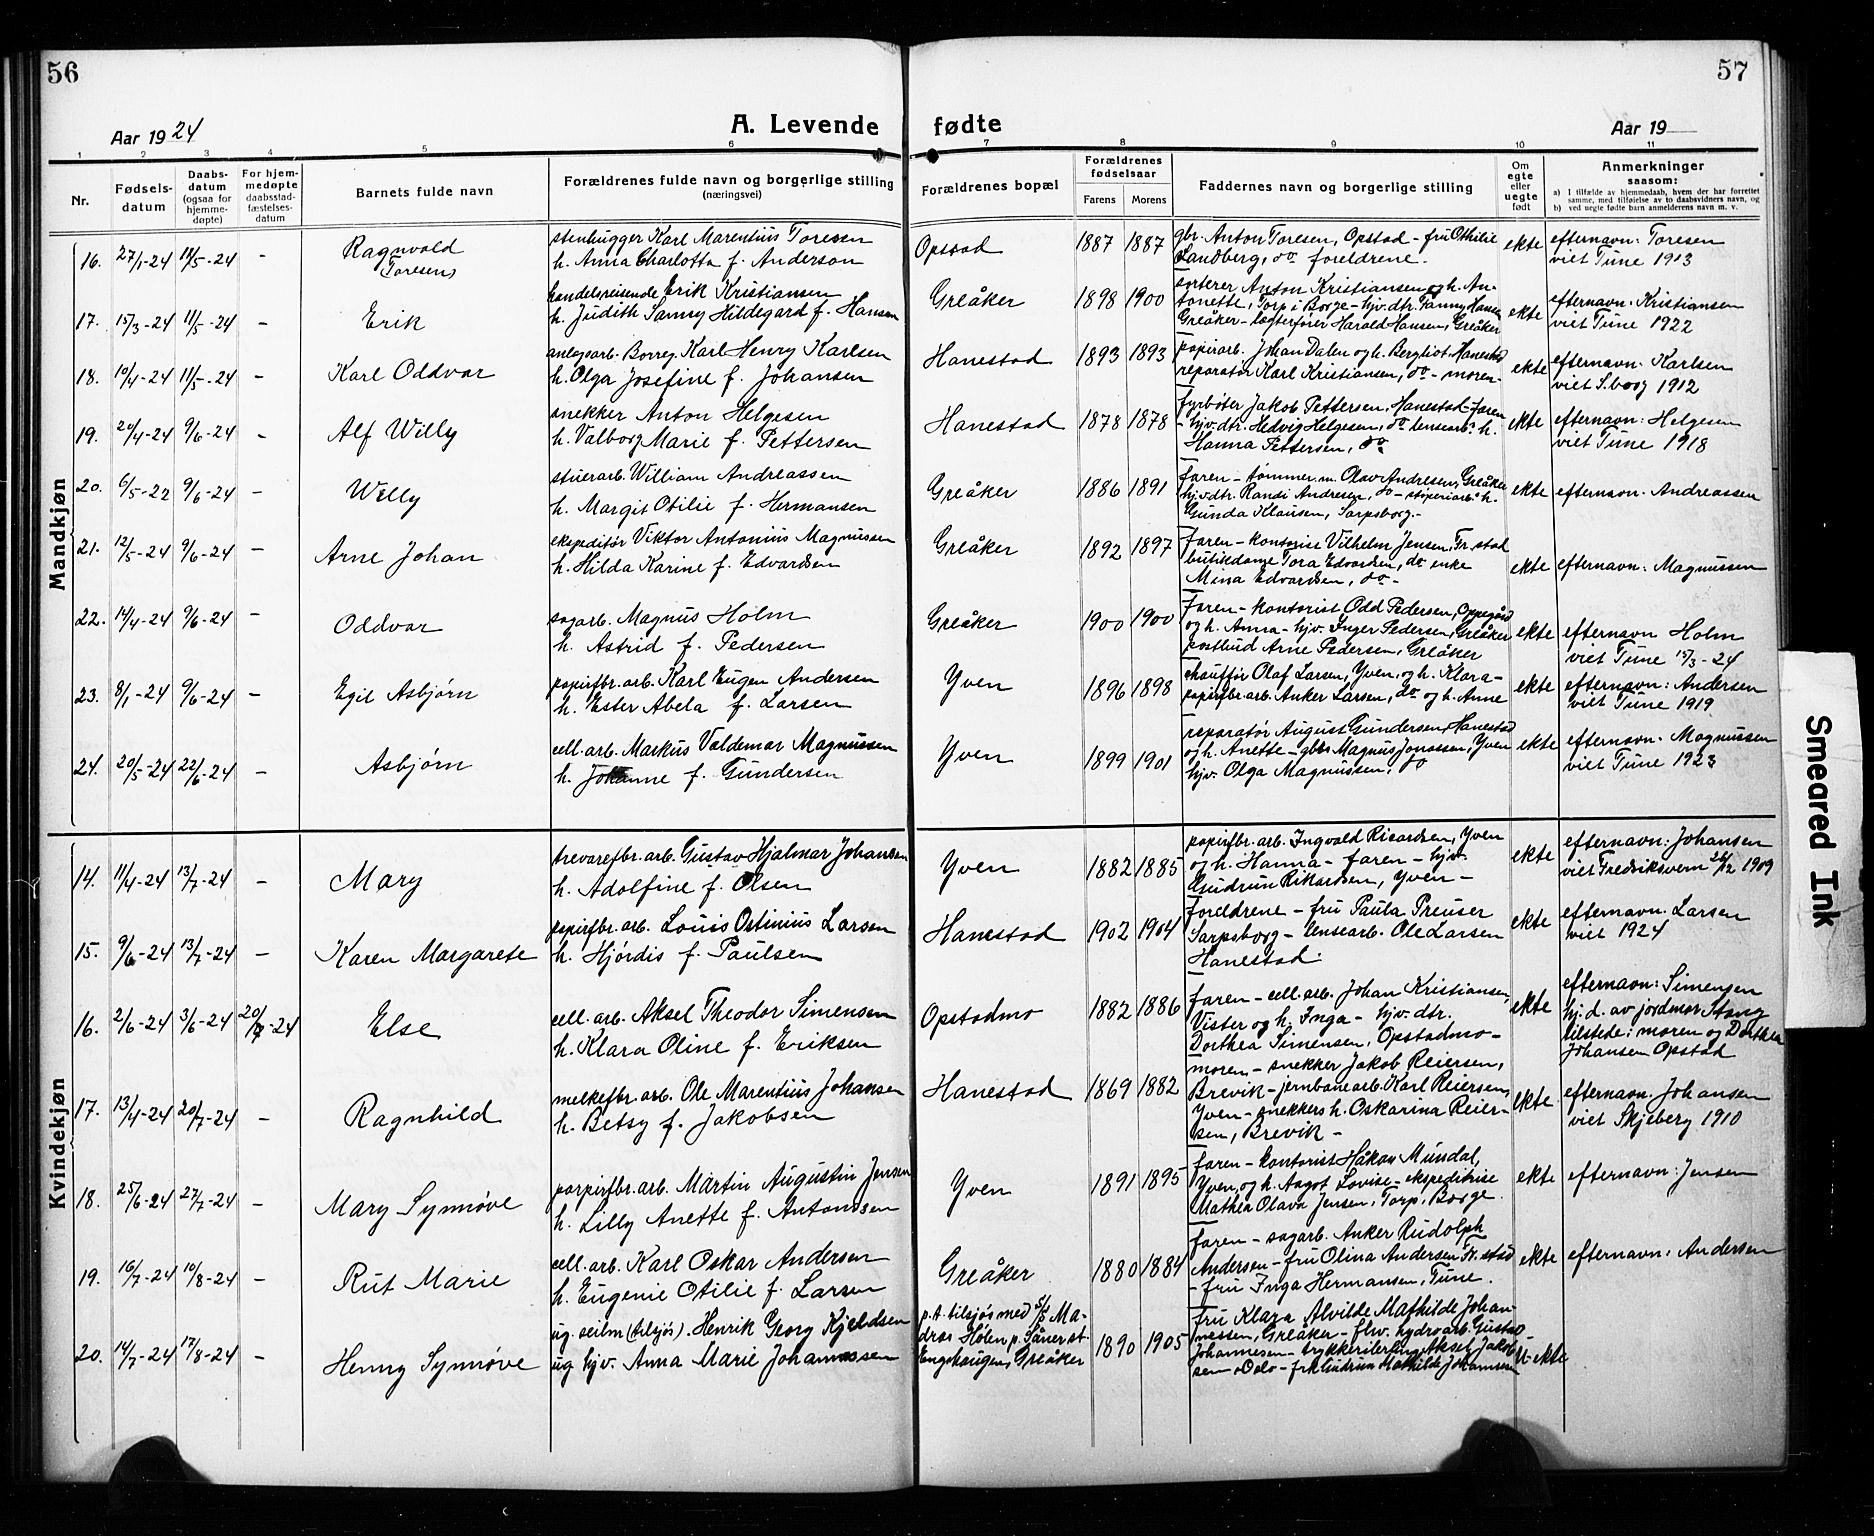 56
57
Aar 1924
A. Levende fødte
Aar 19
1 2 3 4 5 6 7 8 9 10 11
Nr.
Fødsels-
datum
Daabs-
datum
(ogsaa for
hjemme-
døpte)
For hjem-
medøpte
daabsstad-
fæstelses-
datum
Barnets fulde navn
Forældrenes fulde navn og borgerlige stilling
(næringsvei)
Forældrenes bopæl
Forældrenes
fødselsaar
Farens Morens
Faddernes navn og borgerlige stilling
Om
egte
eller
uegte
født
Anmerkninger
saasom:
a) I tilfælde av hjemmedaab, hvem der har forrettet
samme, med tilføielse av to daabsvidners navn, og
b) ved uegte fødte barn anmelderens navn m. v.
Mandkjøn
16. 27/1-24 11/5-24 - Ragnvald
(Toresen)
stenhugger Karl Marentius Toresen
h. Anna Charlotta f. Anderson
Opstad 1887 1887
gbr. Anton Toresen, Opstad - fru Othilie
Sandberg, do foreldrene.
ekte
efternavn: Toresen
viet Tune 1913
17. 15/3-24 11/5-24 - Erik
handelsreisende Erik Kristiansen
h. Judith Sanny Hildegard f. Hansen
Greåker 1898 1900
sorterer Anton Kristiansen og h. An-
tonette, Torp i Borge - hjv. dtr. Fanny Hansen
Greåker - Harald Hansen, Greåker
ekte
efternavn: Kristiansen
viet Tune 1922
18. 10/4-24 11/5-24 - Karl Oddvar
anlegsarb. Borreg. Karl Henry Karlsen
h. Olga Josefine f. Johansen
Hanestad 1893 1893
papirarb. Johan Dalen og h. Bergliot Hanestad
reparatør Karl Kristiansen, do - moren-
ekte
efternavn: Karlsen
viet S.borg 1912
19. 20/4-24 9/6-24 - Alf Willy
snekker Anton Helgesen
h. Valborg Marie f. Pettersen
Hanestad 1878 1878
fyrbøter Jakob Pettersen, Hanestad - faren
- hjv. dtr. Hedvig Helgesen, do lensearbs h.
Hanna Pettersen, do
ekte
efternavn: Helgesen
viet Tune 1918
20. 6/5-22 9/6-24 - Willy
stuerarb. William Andreassen
h. Margit Otilie f. Hermansen
Greåker 1886 1891
faren - tømmer.m. Olav Andresen, Greåker
hjv. dtr. Randi Andresen, do - støperiarbs h.
Gunda Klausen, Sarpsborg.-
ekte
efternavn: Andreassen
21. 12/5-24 9/6-24 - Arne Johan
ekspeditør Viktor Antonius Magnussen
h. Hilda Karine f. Edvardsen
Greåker 1892 1897
faren - Vilhelm Jensen, Fr.stad
butikdame Tora Edvardsen, do enke
Mina Edvardsen, do-
ekte
efternavn: Magnussen
22. 14/4-24 9/6-24 - Oddvar
sagarb. Magnus Holm
h. Astrid f. Pedersen
Greåker 1900 1900
Faren - kontorist Odd Pedersen, Oppegård
og h. Anna - hjv. Inger Pedersen, Greåker
postbud Arne Pedersen, Greåker
ekte
efternavn Holm
viet Tune 15/3-24
23. 8/1-24 9/6-24 - Egil Asbjørn
papirfbr. arb. Karl Eugen Andersen
h. Ester Abela f. Larsen
Yven 1896 1898
chauffør Olaf Larsen, Yven, og h. Klara -
papirfbr. arb. Anker Larsen, do og h. Anne
ekte
efternavn: Andersen
viet Tune 1919
24. 20/5-24 22/6-24 - Asbjørn
cell. arb. Markus Valdemar Magnussen
h. Johanne f. Gundersen
Yven 1899 1901
reparatør August Gundersen, Hanestad
og h. Anette - gbr. Magnus Jonassen, Yven
hjv. Olga Magnussen, do
ekte
efternavn: Magnussen
viet Tune 1923
Kvindekjøn
14. 11/4-24 13/7-24 - Mary
trevarefbr. arb. Gustav Hjalmar Johansen
h. Adolfine f. Olsen
Yven 1882 1885
papirfbr. arb. Ingvald Ricardsen, Yven
og h. Hanna - faren - hjv.
Gudrun Rikardsen, Yven -
ekte
efternavn: Johansen
viet Fredriksvern 26/12 1909
15. 9/6-24 13/7-24 - Karen Margarete
papirfbr. arb. Louis Ostinius Larsen
h. Hjørdis f. Paulsen
Hanestad 1902 1904
foreldrene - fru Paula Preuser
Sarpsborg - lensearb. Ole Larsen
Hanestad.
ekte
efternavn: Larsen
viet 1924
16. 2/6-24 3/6-24 20/7-24 Else
cell. arb. Aksel Theodor Simensen
h. Klara Oline f. Eriksen
Opstadmo 1882 1886
faren - cell. arb. Johan Kristiansen,
Vister og h. Inga - hjv. dtr.
Dorthea Simensen, Opstadmo -
ekte
efternavn: Simensen
hj. d. av jordmor Stang
tilstede: moren og Dorthea
Johansen Opstad
17. 13/4-24 20/7-24 - Ragnhild
melkefbr. arb. Ole Marentius Johansen
h. Betsy f. Jakobsen
Hanestad 1869 1882
moren - snekker Jakob Reiersen,
Brevik - jernbanearb. Karl Reiersen,
Yven - snekkers h. Oskarina Reier-
sen, Brevik -
ekte
efternavn: Johansen
viet Skjeberg 1910
18. 25/6-24 27/7-24 - Mary Synnøve
parpirfbr. arb. Martin Augustin Jensen
h. Lilly Anette f. Antonsen
Yven 1891 1895
faren - kontorist Håkon Mundal,
Yven, og h. Aagot Lovise - ekspeditrise
Mathea Olava Jensen, Torp, Borge.
ekte
efternavn: Jensen
19. 16/7-24 10/8-24 - Rut Marie
cell. arb. Karl Oskar Andersen
h. Eugenie Otilie f. Larsen
Greåker 1880 1884
faren - sagarb. Anker Rudolph
Andersen - fru Olina Andersen Fr.stad
- fru Inga Hermansen, Tune.
ekte
efternavn: Andersen
20. 14/7-24 17/8-24 - Henny Synnøve
ug. seilm (tilsjøs). Henrik Georg Kjeldsen
ug hjv. Anna Marie Johannessen
p.t. tilsjøs med S/S Ma-
dras Hølen p. Såner st.
Engehaugen, Greåker
1890 1905
Fru Klara Alvilde Mathilde Johan-
nessen, Greåker - flw. hydroarb. Gustav
Johannesen - trykkerilerling Aksel Jakob-
sen Oslo - frk Gudrun Mathilde Johannesen
U-ekte
Smeared Ink